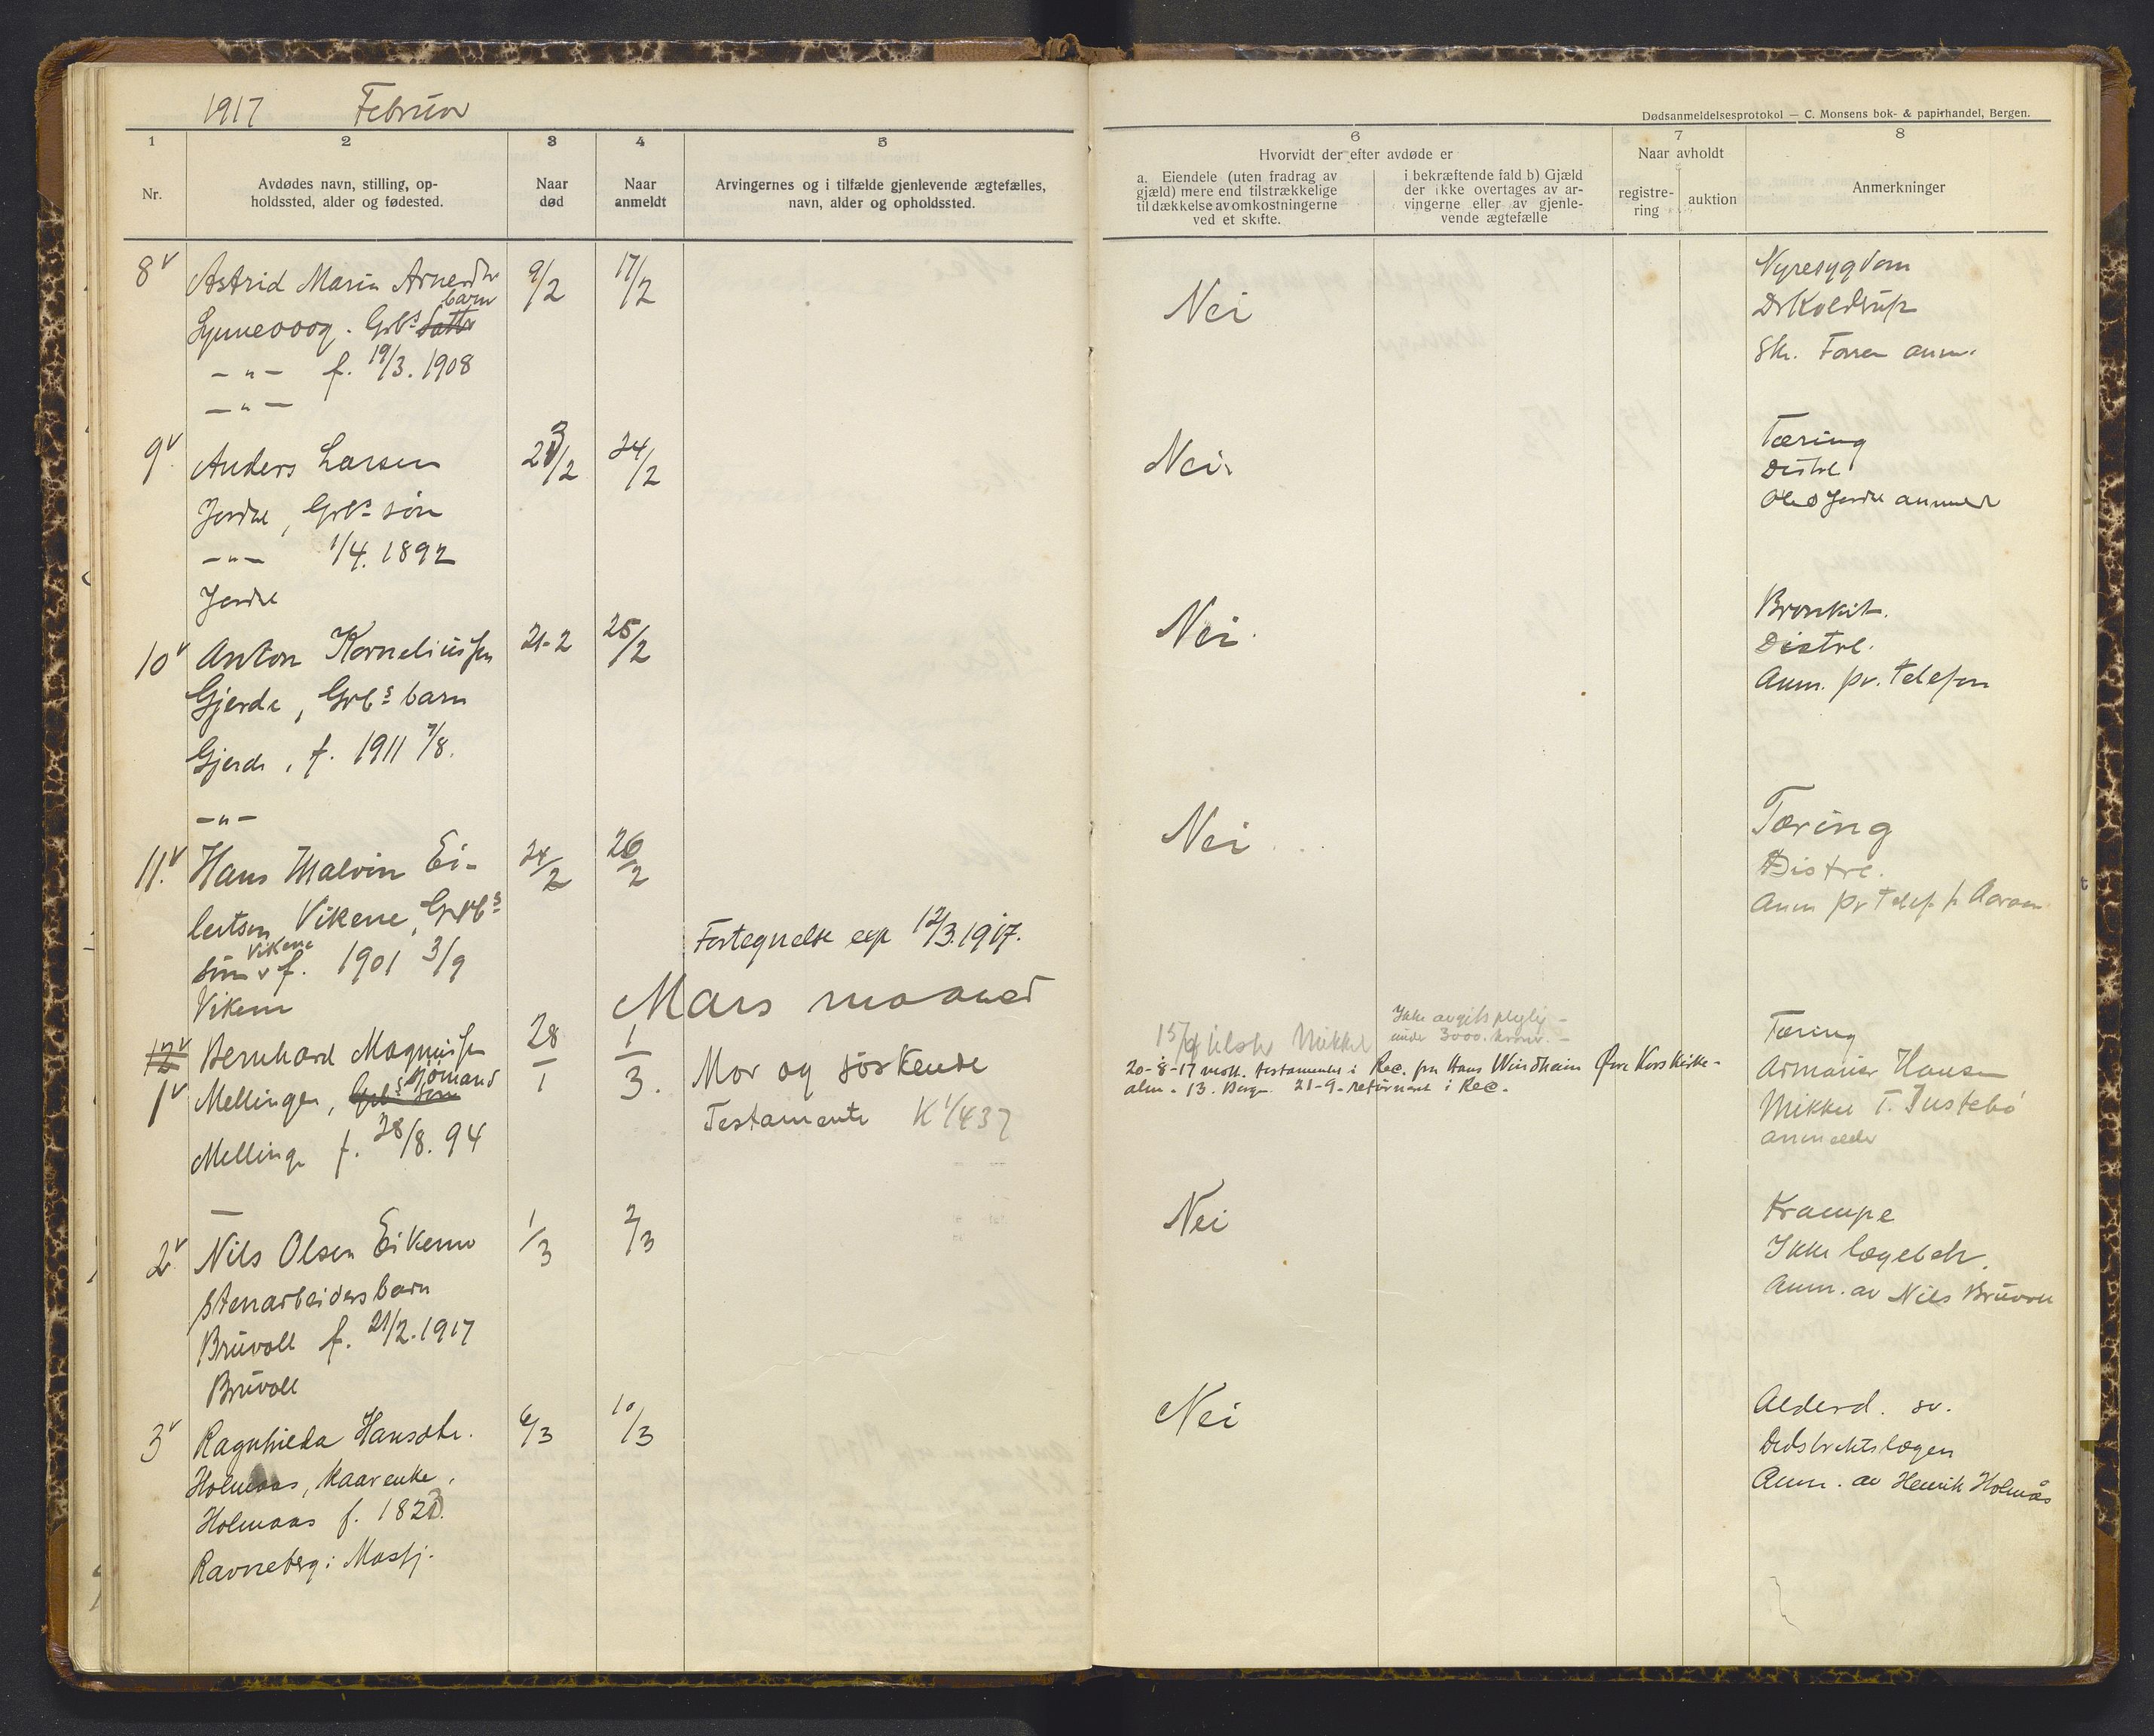 1917 Februar
Dødsanmeldelsesprotokol — C. Monsens bok- & papirhandel, Bergen.
1
2
3
4
5
6
7
8
Nr.
Avdødes navn, stilling, op-
holdssted, alder og fødested.
Naar
død
Naar
anmeldt
Arvingernes og i tilfælde gjenlevende ægtefælles,
navn, alder og opholdssted.
Hvorvidt der efter avdøde er
a. Eiendele (uten fradrag av
gjæld) mere end tilstrækkelige
til dækkelse av omkostningerne
ved et skifte.
i bekræftende fald b) Gjæld
der ikke overtages av ar-
vingerne eller av gjenle-
vende ægtefælle
Naar avholdt
registre-
ring
auktion
Anmerkninger
8
Astrid Marin Arnesdtr
barn
Grbs
- " - f. 19/3. 1908
- " -
9/2
17/2
Nei
Nyresygdom
Dr Koldrup
9
Anders Larsen
Jordal, Grbs søn
- " - 1/4. 1892
Jordal
24/2
Nei
Tæring
Distrl
10
Anton Korneliussen
Gjerde, Grbs barn
Gjerde, f. 1911 7/8.
- " -
21-2
25/2
Nei.
Bronkit.
Distrl.
Anm. pr. telefon
11.
Hans Malvin Ei-
lertsen Vikene, Grbs
Vikene
søn f. 1901 3/9
Vikene
24/2
26/2
Nei
Tæring
Distrl.
Anm pr telef
Fortegnelse exp 12/3. 1917.
Mars maaned
12
1
Bernhard Magnussen
Sjømand
Mellingen, Grbs søn
Mellingen f. 28/8. 94
28/1
1/3.
Mor og søskende
Testamente K 1/437
Ikke avgiftspligtig -
under 3000. kroner. -
20-8-17 mott. testamentet i Rec. fra Hans Windheim Øvre Korskirke-
alm. 13. Bergen 21-9- returnert i Rec.
Tæring
Armauer Hansen
Mikkel T. Justebø
anmelder
2
Nils Olsen Eikemo
Stenarbeidersbarn
Bruvoll f. 21/2. 1917
Bruvoll
1/3
2/3
Nei
Krampe
Ikke lægebeh.
Anm. av Nils Bruvoll
3
Ragnhilda Hansdtr.
Holmaas, kaarenke,
Holmaas f.
Ravneberg i Masfj.
6/3
10/3
Nei
Alderd. sv.
Distriktslægen
Anm. av Henrik Holmås